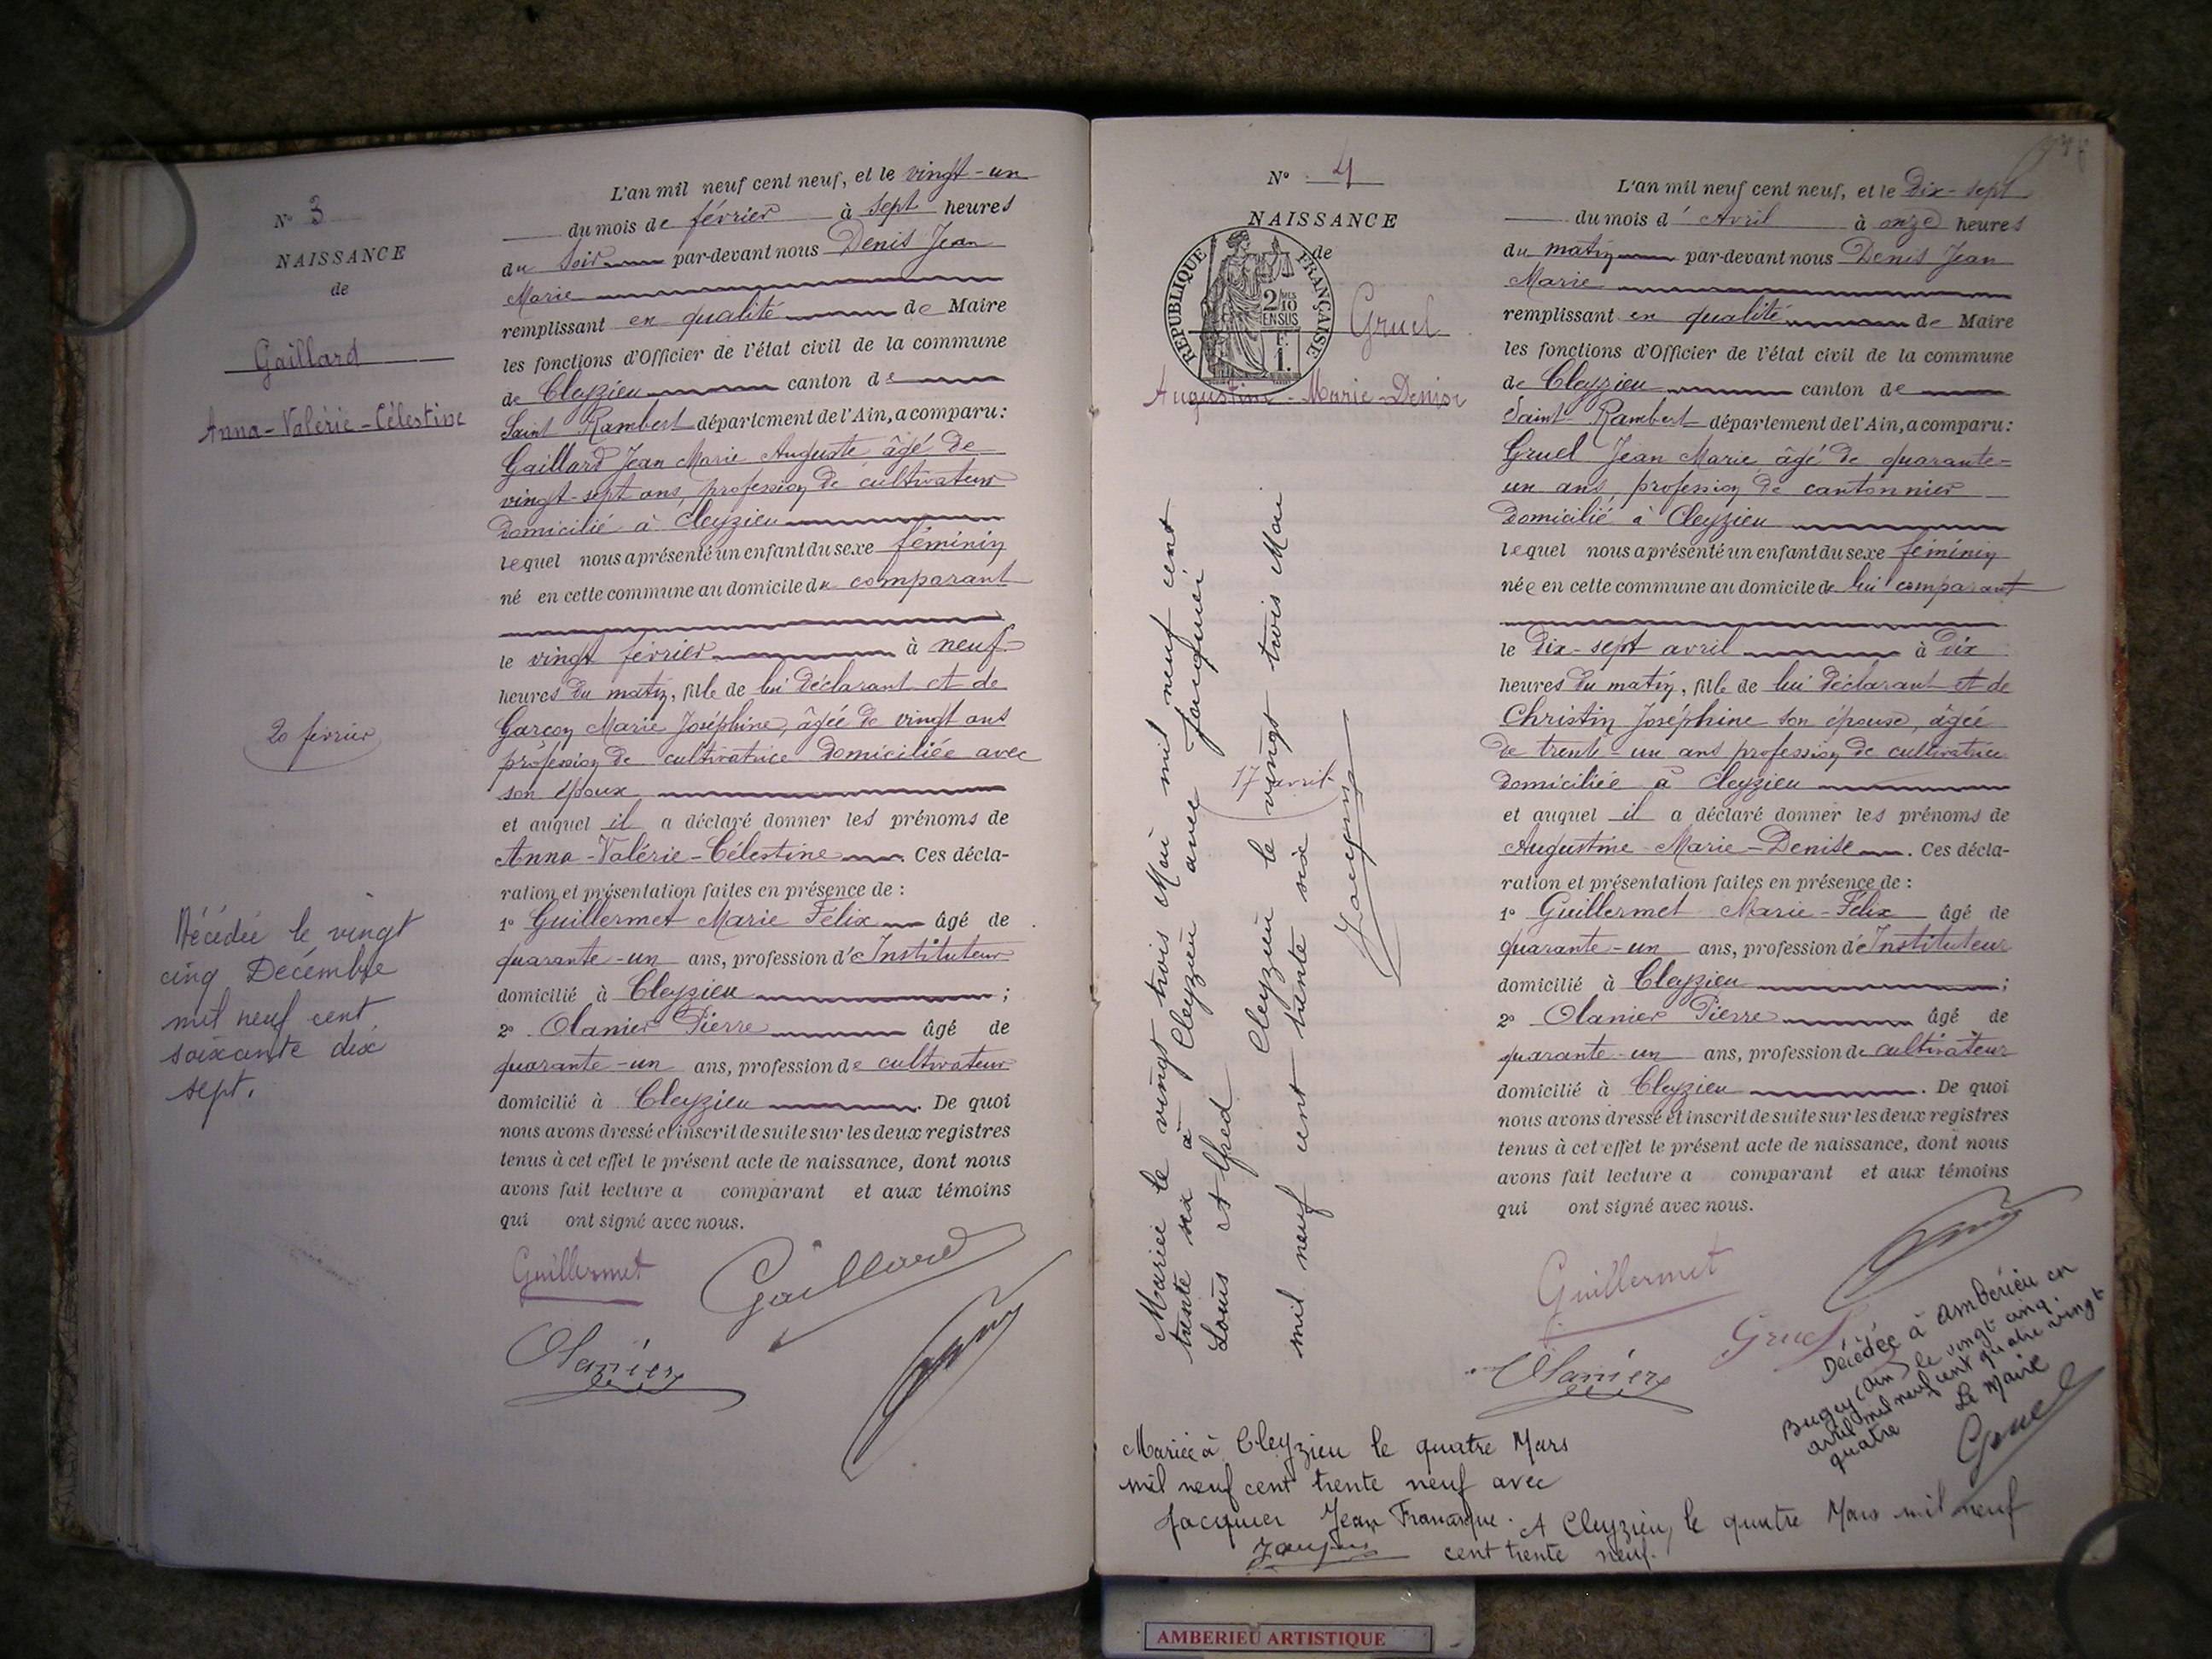 N° 3
NAISSANCE
de
Gaillard
Anna-Valérie-Célestine
20 février
Décédée le vingt
cinq Décembre
mil neuf cent
soixante dix
sept.
L'an mil neuf cent neuf, et le vingt-un
du mois de février à sept heures
du soir par-devant nous Denis Jean
Marie
remplissant en qualité de Maire
les fonctions d'Officier de l'état civil de la commune
de Cleyzieu canton de
Saint Rambert département de l'Ain, a comparu:
Gaillard Jean Marie Auguste âgé de
vingt-sept ans, profession de cultivateur
domicilié à Cleyzieu
lequel nous a présenté un enfant du sexe féminin
né en cette commune au domicile du comparant
le vingt février à neuf
heures du matin, fille de lui déclarant et de
Garçon Marie Joséphine, âgée de vingt ans
profession de cultivatrice domiciliée avec
son époux
et auquel il a déclaré donner les prénoms de
Anna-Valérie-Célestine. Ces décla-
ration et présentation faites en présence de :
1° Guillermet Marie Félix âgé de
quarante-un ans, profession d'Instituteur
domicilié à Cleyzieu ;
2° Olanier Pierre âgé de
quarante-un ans, profession de cultivateur
domicilié à Cleyzieu . De quoi
nous avons dressé et inscrit de suite sur les deux registres
tenus à cet effet le présent acte de naissance, dont nous
avons fait lecture a comparant et aux témoins
qui ont signé avec nous.
Guillermet Gaillard
Olanier
N° 4
NAISSANCE
de
REPUBLIQUE FRANÇAISE
2/10 EN SUS
F. 1.
Gruel
Augustine-Marie-Denise
17 avril
Mariée le vingt trois Mai mil neuf cent
trente six à Cleyzieu avec Jacquier
Louis Alfred Cleyzieu le vingt trois Mai
mil neuf cent trente six
L'an mil neuf cent neuf, et le Dix-sept
du mois d'Avril à onze heures
du matin par-devant nous Denis Jean
Marie
remplissant en qualité de Maire
les fonctions d'Officier de l'état civil de la commune
de Cleyzieu canton de
Saint Rambert département de l'Ain, a comparu:
Gruel Jean Marie âgé de quarante-
un ans, profession de cantonnier
domicilié à Cleyzieu
lequel nous a présenté un enfant du sexe féminin
née en cette commune au domicile de lui comparant
le Dix-sept avril à dix
heures du matin, fille de lui déclarant et de
Christin Joséphine son épouse, âgée
de trente-un ans profession de cultivatrice
domiciliée à Cleyzieu
et auquel il a déclaré donner les prénoms de
Augustine-Marie-Denise. Ces décla-
ration et présentation faites en présence de :
1° Guillermet Marie-Félix âgé de
quarante-un ans, profession d'Instituteur
domicilié à Cleyzieu ;
2° Olanier Pierre âgé de
quarante-un ans, profession de cultivateur
domicilié à Cleyzieu . De quoi
nous avons dressé et inscrit de suite sur les deux registres
tenus à cet effet le présent acte de naissance, dont nous
avons fait lecture a comparant et aux témoins
qui ont signé avec nous.
Guillermet
Gruel
Olanier
Décédée à Ambérieu en
Bugey (Ain) le vingt cinq
avril mil neuf cent quatre vingt
quatre Le Maire
Gruel
Mariée à Cleyzieu le quatre Mars
mil neuf cent trente neuf avec
Jacquier Jean Francisque. A Cleyzieu, le quatre Mars mil neuf
cent trente neuf.
AMBERIEU ARTISTIQUE